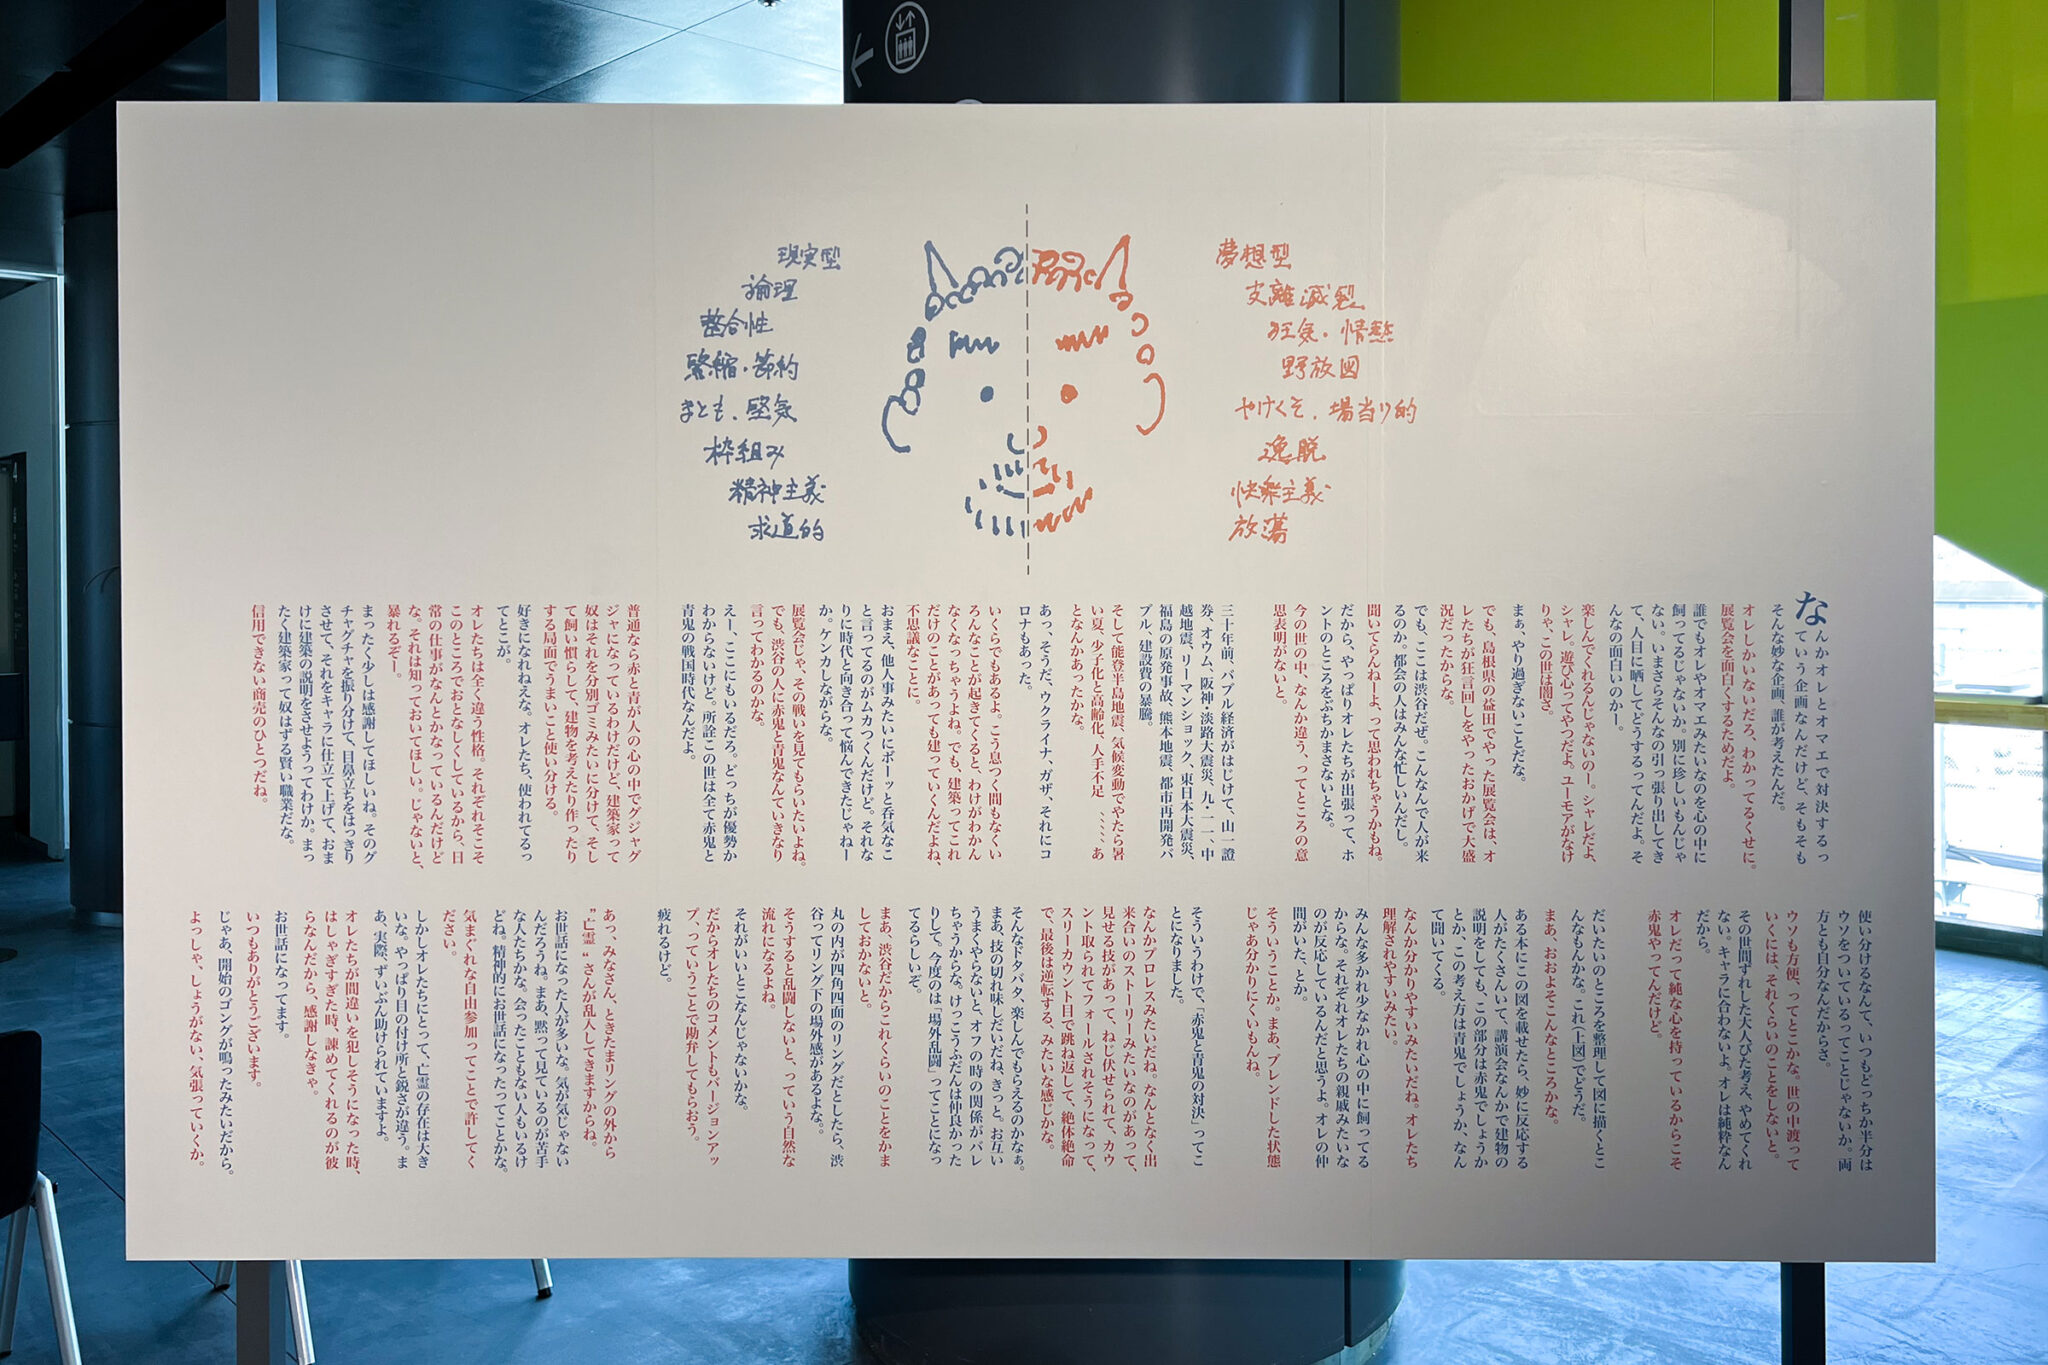 夢想型
支離滅裂
狂気・情慾
野放図
やけくそ、場当り的
逸脱
快楽主義
放蕩
現実型
論理
整合性
緊縮・節約
まとも、堅気
枠組み
精神主義
求道的
なんかオレとオマエで対決するっ
ていう企画なんだけど、そもそも
そんな妙な企画、誰が考えたんだ。
オレしかいないだろ、わかってるくせに。
展覧会を面白くするためだよ。
誰でもオレやオマエみたいなのを心の中に
飼ってるじゃないか。別に珍しいもんじゃ
ない。いまさらそんなの引っ張り出してき
て、人目に晒してどうするってんだよ。そ
んなの面白いのかー。
楽しんでくれるんじゃないのー。シャレだよ、
シャレ。遊び心ってやつだよ。ユーモアがなけ
りゃ、この世は闇さ。
まぁ、やり過ぎないことだな。
でも、島根県の益田でやった展覧会は、オ
レたちが狂言回しをやったおかげで大盛
況だったからな。
でも、ここは渋谷だぜ。こんなんで人が来
るのか。都会の人はみんな忙しいんだし。
聞いてらんねーよ、って思われちゃうかもね。
だから、やっぱりオレたちが出張って、ホ
ントのところをぶちかまさないとな。
今の世の中、なんか違う、ってところの意
思表明がないと。
三十年前、バブル経済がはじけて、山一證
券、オウム、阪神・淡路大震災、九・一一、中
越地震、リーマンショック、東日本大震災、
福島の原発事故、熊本地震、都市再開発バ
ブル、建設費の暴騰。
そして能登半島地震、気候変動でやたら暑
い夏、少子化と高齢化、人手不足 、、、、あ
となんかあったかな。
あっ、そうだ、ウクライナ、ガザ、それにコ
ロナもあった。
いくらでもあるよ。こう息つく間もなくい
ろんなことが起きてくると、わけがわかん
なくなっちゃうよね。でも、建築ってこれ
だけのことがあっても建っていくんだよね、
不思議なことに。
おまえ、他人事みたいにボーッと呑気なこ
と言ってるのがムカつくんだけど。それな
りに時代と向き合って悩んできたじゃねー
か。ケンカしながらな。
展覧会じゃ、その戦いを見てもらいたいよね。
でも、渋谷の人に赤鬼と青鬼なんていきなり
言ってわかるのかな。
えー、ここにもいるだろ。どっちが優勢か
わからないけど。所詮この世は全て赤鬼と
青鬼の戦国時代なんだよ。
普通なら赤と青が人の心の中でグジャグ
ジャになっているわけだけど、建築家って
奴はそれを分別ゴミみたいに分けて、そし
て飼い慣らして、建物を考えたり作ったり
する局面でうまいこと使い分ける。
好きになれねえな。オレたち、使われてるっ
てとこが。
オレたちは全く違う性格。それぞれそこそ
このところでおとなしくしているから、日
常の仕事がなんとかなっているんだけど
な。それは知っておいてほしい。じゃないと、
暴れるぞー。
まったく少しは感謝してほしいね。そのグ
チャグチャを振り分けて、目鼻立ちをはっきり
させて、それをキャラに仕立て上げて、おま
けに建築の説明をさせようってわけか。まっ
たく建築家って奴はずる賢い職業だな。
信用できない商売のひとつだね。
使い分けるなんて、いつもどっちか半分は
ウソをついているってことじゃないか。両
方とも自分なんだからさ。
ウソも方便、ってとこかな。世の中渡って
いくには、それくらいのことをしないと。
その世間ずれした大人びた考え、やめてくれ
ない。キャラに合わないよ。オレは純粋なん
だから。
オレだって純な心を持っているからこそ
赤鬼やってんだけど。
だいたいのところを整理して図に描くとこ
んなもんかな。これ(上図)でどうだ。
まあ、おおよそこんなところかな。
ある本にこの図を載せたら、妙に反応する
人がたくさんいて、講演会なんかで建物の
説明をしても、この部分は赤鬼でしょうか
とか、この考え方は青鬼でしょうか、なん
て聞いてくる。
なんか分かりやすいみたいだね。オレたち
理解されやすいみたい。
みんな多かれ少なかれ心の中に飼ってる
からな。それぞれオレたちの親戚みたいな
のが反応しているんだと思うよ。オレの仲
間がいた、とか。
そういうことか。まあ、ブレンドした状態
じゃあ分かりにくいもんね。
そういうわけで、「赤鬼と青鬼の対決」ってこ
とになりました。
なんかプロレスみたいだね。なんとなく出
来合いのストーリーみたいなのがあって、
見せる技があって、ねじ伏せられて、カウ
ント取られてフォールされそうになって、
スリーカウント目で跳ね返して、絶体絶命
で、最後は逆転する、みたいな感じかな。
そんなドタバタ、楽しんでもらえるのかなぁ。
まあ、技の切れ味しだいだね、きっと。お互い
うまくやらないと、オフの時の関係がバレ
ちゃうからな。けっこうふだんは仲良かった
りして。今度のは「場外乱闘」ってことになっ
てるらしいぞ。
まあ、渋谷だからこれくらいのことをかま
しておかないと。
丸の内が四角四面のリングだとしたら、渋
谷ってリング下の場外感があるよな。
そうすると乱闘しないと、っていう自然な
流れになるよね。
それがいいとこなんじゃないかな。
だからオレたちのコメントもバージョンアッ
プ、っていうことで勘弁してもらおう。
疲れるけど。
あっ、みなさん、ときたまリングの外から
”亡霊“さんが乱入してきますからね。
お世話になった人が多いな。気が気じゃない
んだろうね。まあ、黙って見ているのが苦手
な人たちかな。会ったこともない人もいるけ
どね。精神的にお世話になったってことかな。
気まぐれな自由参加ってことで許してく
ださい。
しかしオレたちにとって、亡霊の存在は大き
いな。やっぱり目の付け所と鋭さが違う。ま
あ、実際、ずいぶん助けられていますよ。
オレたちが間違いを犯しそうになった時、
はしゃぎすぎた時、諫めてくれるのが彼
らなんだから、感謝しなきゃ。
いつもありがとうございます。
お世話になってます。
じゃあ、開始のゴングが鳴ったみたいだから。
よっしゃ、しょうがない、気張っていくか。